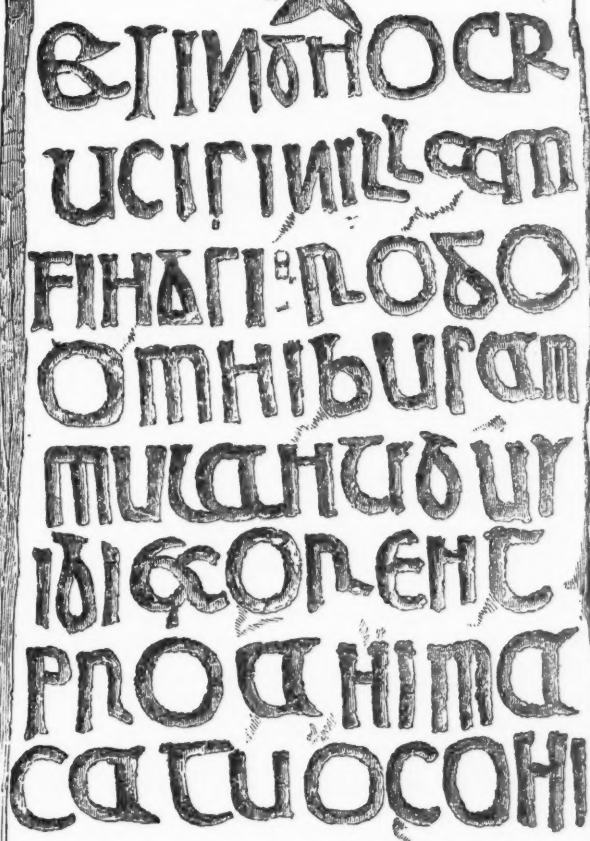 ETSINGNOCR
UCISINILLAM
FINGSI:ROGO
OMNIBUSAM
MULANTIBUS
IBIEXORENT
PROANIMA
CATUOCONI